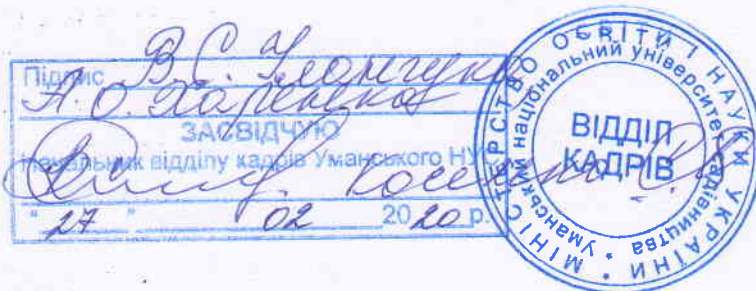 Підпис В.С. Уланчука
А.О. Харенка
ЗАСВІДЧУЮ
Начальник відділу кадрів Уманського НУС
" 27 " 02 2020 р.
МІНІСТЕРСТВО ОСВІТИ І НАУКИ УКРАЇНИ *
Уманський національний університет садівництва *
ВІДДІЛ
КАДРІВ